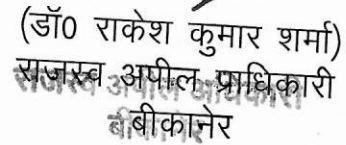 (डॉ0 राकेश कुमार शर्मा)
राजस्व अपील प्राधिकारी
बीकानेर